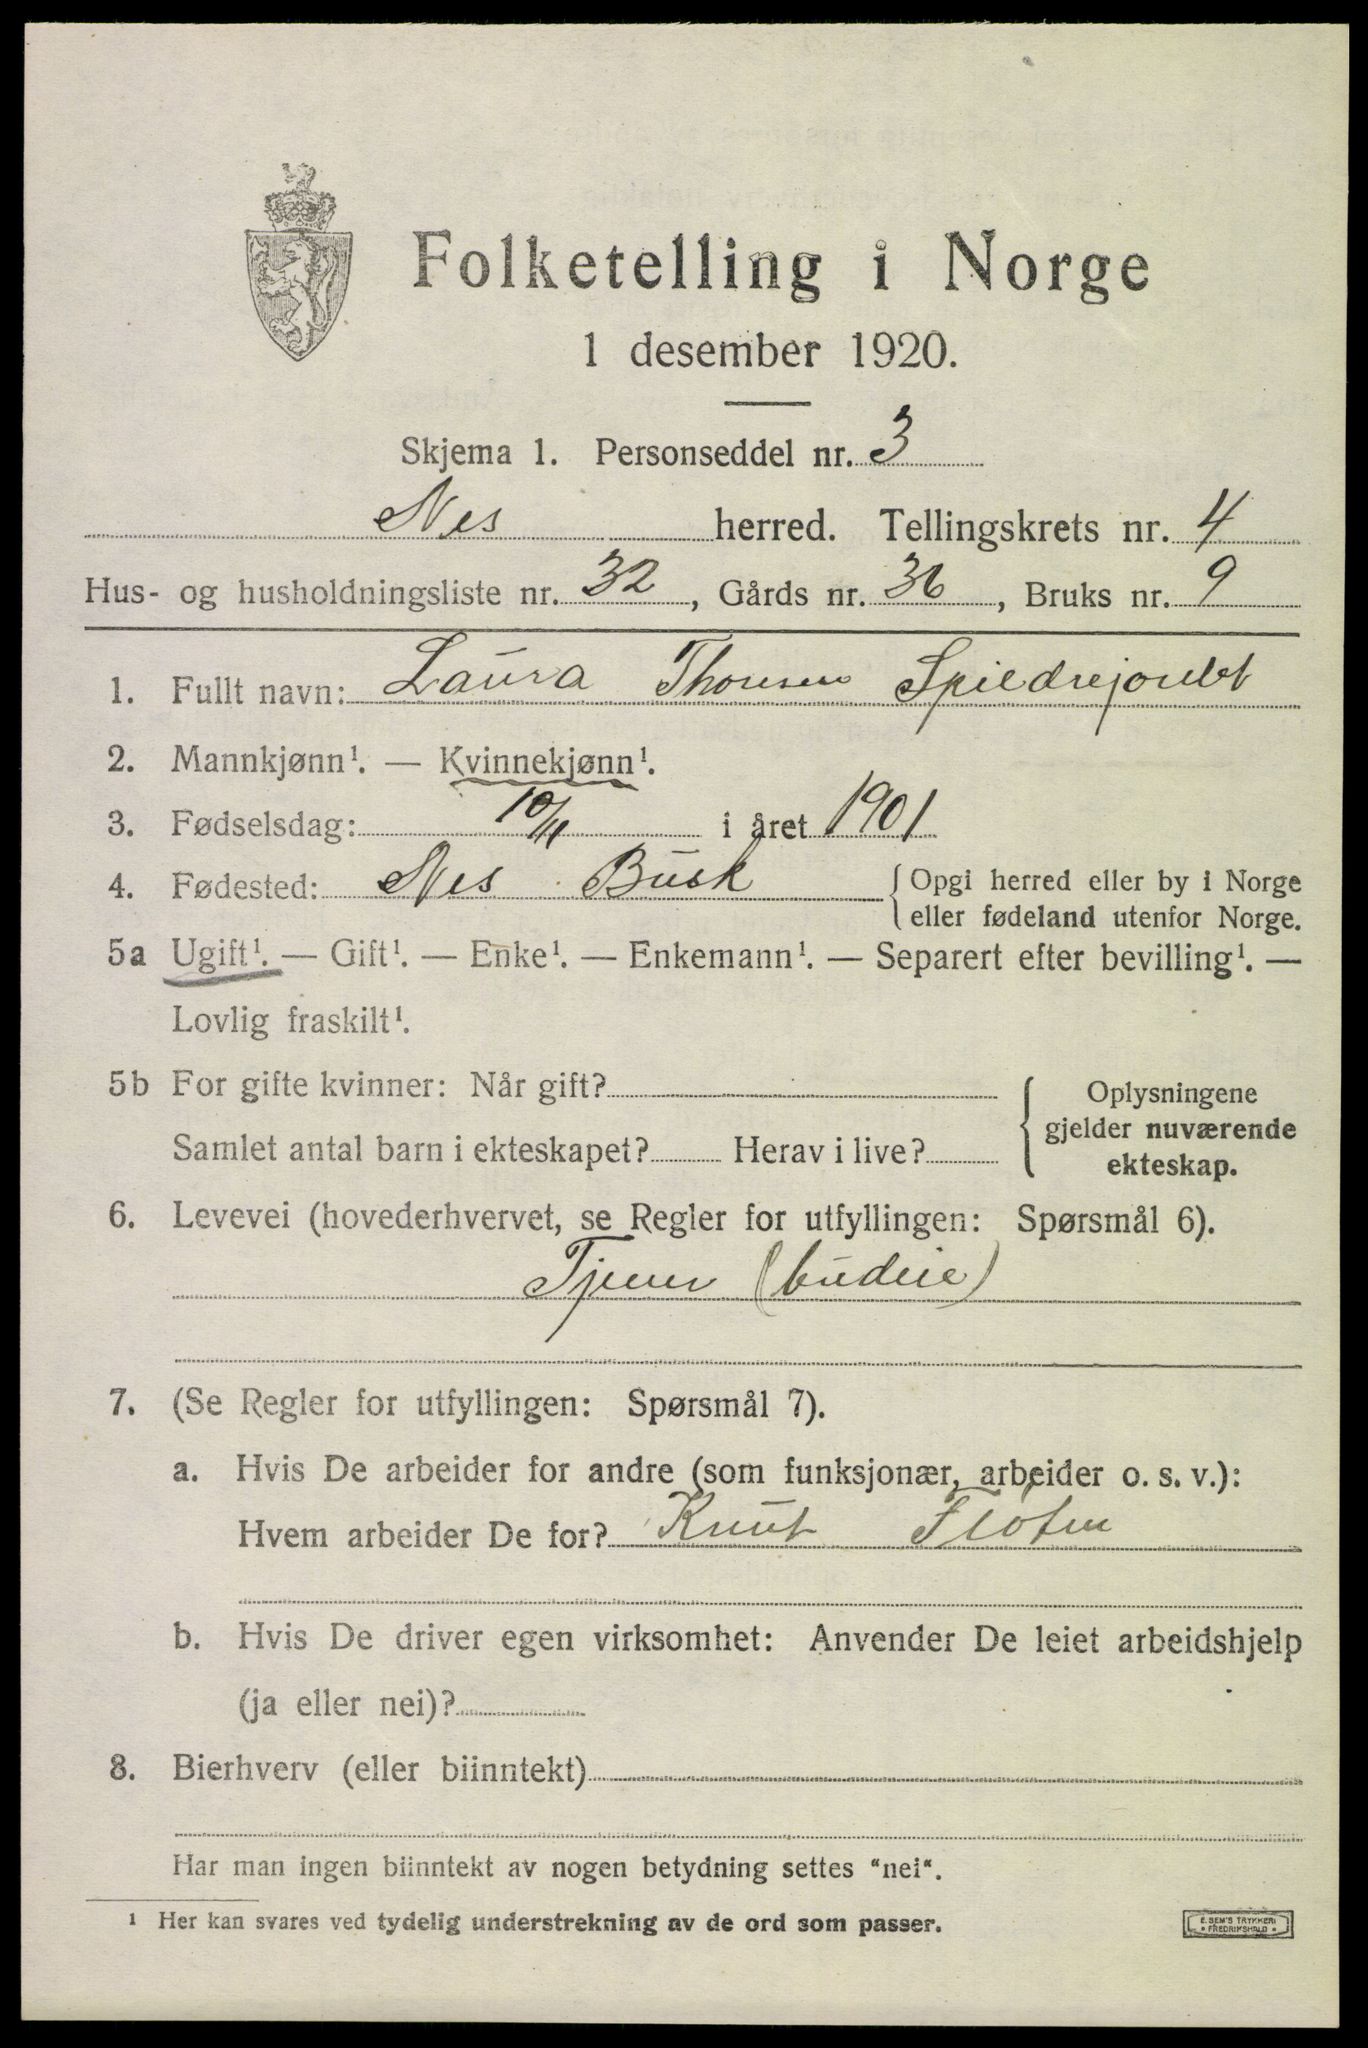 Folketelling i Norge
1 desember 1920.
Skjema 1. Personseddel nr. 3
Nes herred. Tellingskrets nr. 4
Hus- og husholdningsliste nr. 32, Gårds nr. 36, Bruks nr. 9
1. Fullt navn: Laura Thorsen
2. Mannkjønn¹. — Kvinnekjønn¹.
3. Fødselsdag: 10/11 i året 1901
4. Fødested: Nes Busk { Opgi herred eller by i Norge
eller fødeland utenfor Norge.
5a Ugift¹. — Gift¹. — Enke¹. — Enkemann¹. — Separert efter bevilling¹. —
Lovlig fraskilt¹.
5b For gifte kvinner: Når gift?
Samlet antal barn i ekteskapet? Herav i live?
{ Oplysningene
gjelder nuværende
ekteskap.
6. Levevei (hovederhvervet, se Regler for utfyllingen: Spørsmål 6).
Tjener (budeie)
7. (Se Regler for utfyllingen: Spørsmål 7).
a. Hvis De arbeider for andre (som funksjonær, arbeider o. s. v.):
Hvem arbeider De for? Knut Fløten
b. Hvis De driver egen virksomhet: Anvender De leiet arbeidshjelp
(ja eller nei)?
8. Bierhverv (eller biinntekt)
Har man ingen biinntekt av nogen betydning settes "nei".
¹ Her kan svares ved tydelig understrekning av de ord som passer.
E. SEM'S TRYKKERI
FREDRIKSHALD